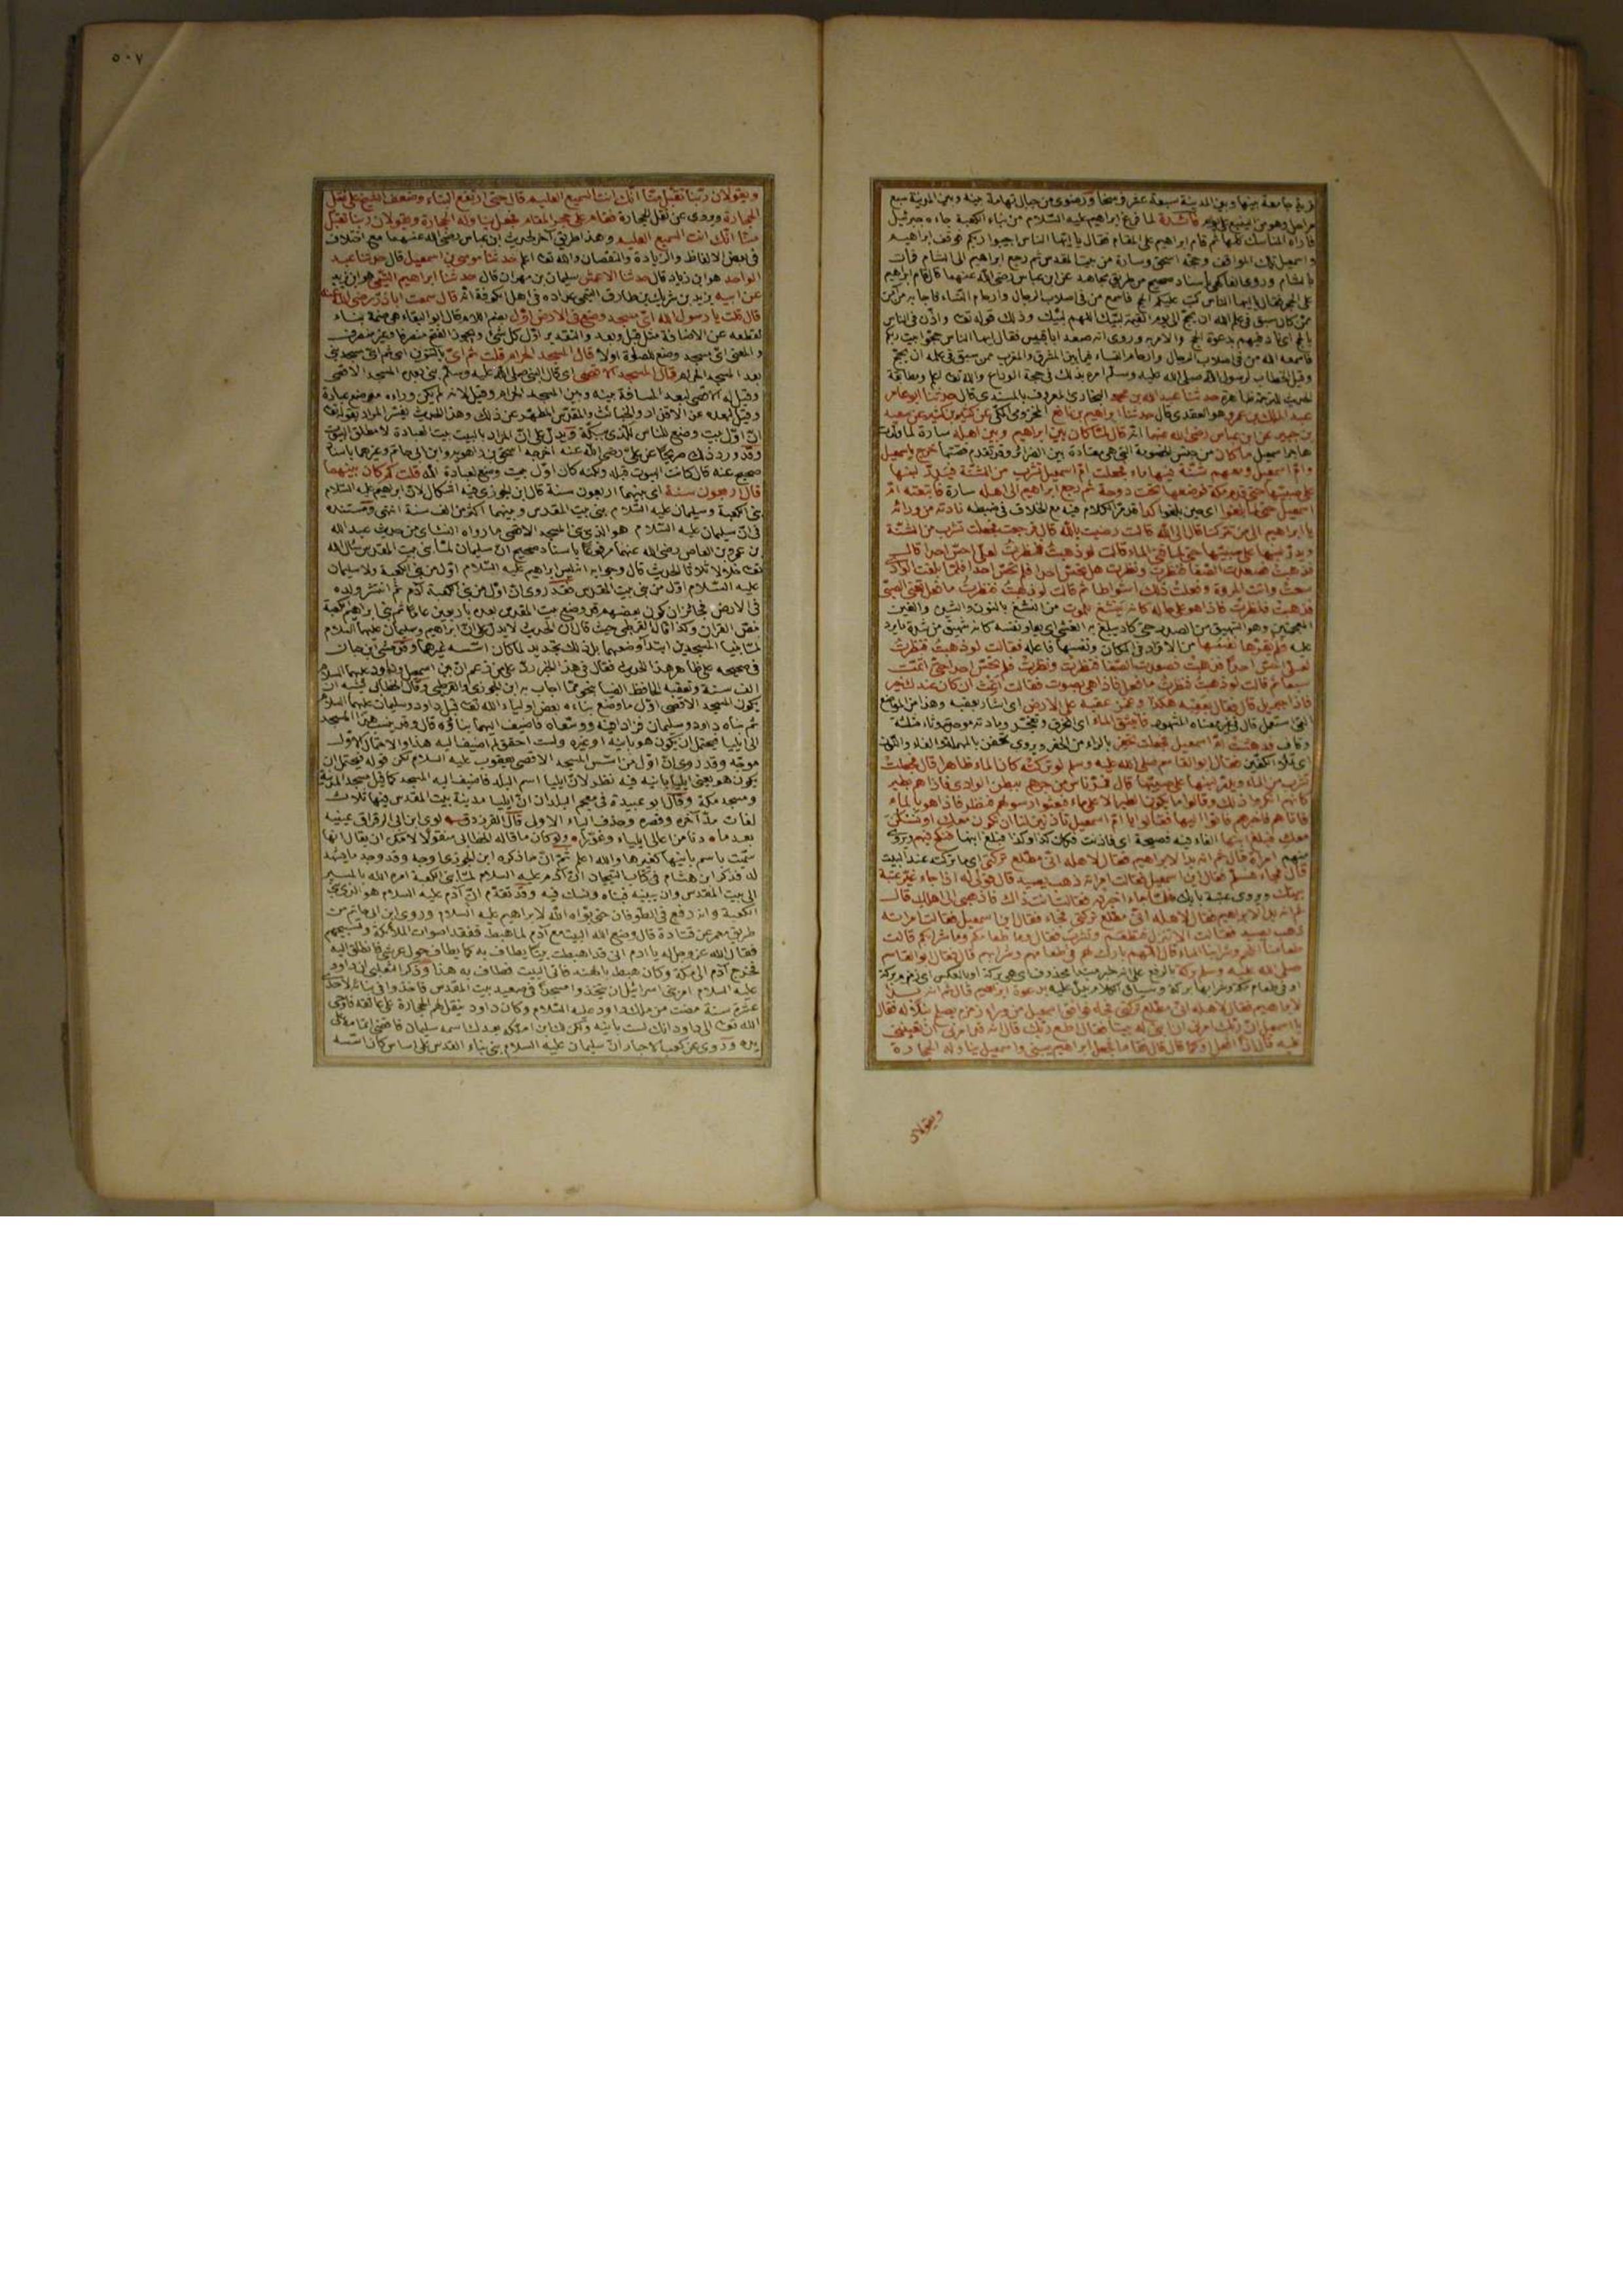 قرية جامعة بينها وبين المدينة سبعة عشر فرسخا ورضوى من جبال تهامة بينه وبين المدينة سبع
مراحل وهو من الينبع على يوم فائدة لما فرغ ابراهيم عليه السلام من بناء الكعبة جاءه جبرئيل
فاراه المناسك كلها ثم قام ابراهيم على المقام فقال يا ايها الناس اجيبوا ربكم فوقف ابراهيم
واسمعيل تلك المواقف وحجه اسحق وسارة من بيت المقدس ثم رجع ابراهيم الى الشام فمات
بالشام وروى الفاكهي باسناد صحيح من طريق مجاهد عن ابن عباس رضى الله عنهما قال قام ابراهيم
على الحجر فقال يا ايها الناس كتب عليكم الحج فاسمع من في اصلاب الرجال وارحام النساء فاجابه من آمن
ممن كان سبق في علم الله ان يحج الى يوم القيمة لبيك اللهم لبيك وذلك قوله تعا واذن في الناس
بالحج اى ناد فيهم بدعوة الحج والامر به وروى انه صعد ابا قبيس فقال ايها الناس حجوا بيت ربكم
فاسمعه الله من في اصلاب الرجال وارحام النساء فيما بين المشرق والمغرب ممن سبق في علمه ان يحج
وقيل الخطاب لرسول الله صلى الله عليه وسلم امر بذلك في حجة الوداع والله تعا اعلم ومطابقة
الحديث للترجمة ظاهرة حدثنا عبد الله بن محمد البخارى المعروف بالمسندى قال حدثنا ابو عامر
عبد الملك بن عمرو هو العقدى قال حدثنا ابراهيم بن نافع المخزومى المكى عن كثير بن كثير عن سعيد
بن جبير عن ابن عباس رضى الله عنهما انه قال لما كان بين ابراهيم وبين اهله سارة لما ولدت
هاجر اسمعيل ما كان من جنس الخصومة التى هى معتادة بين الضرائر وقد تقدم قصتها خرج باسمعيل
وام اسمعيل ومعهم شنة فيها ماء فجعلت ام اسمعيل تشرب من الشنة فيدر لبنها
على صبيها حتى قدم مكة فوضعها تحت دوحة ثم رجع ابراهيم الى اهله سارة فاتبعته ام
اسمعيل حتى لما بلغوا اى حين بلغوا كداء قد مر الكلام فيه مع الخلاف في ضبطه نادته من ورائه
يا ابراهيم الى من تتركنا قال الى الله قالت رضيت بالله قال فرجعت فجعلت تشرب من الشنة
ويدر لبنها على صبيها حتى لما فنى الماء قالت لو ذهبت فنظرت لعلى احس احدا قال
فذهبت فصعدت الصفا فنظرت ونظرت هل تحس احدا فلم تحس احدا فلما بلغت الوادى
سعت واتت المروة وفعلت ذلك اشواطا ثم قالت لو ذهبت فنظرت ما فعل تعنى الصبى
فذهبت فنظرت فاذا هو على حاله كانه ينشغ للموت من النشغ بالنون والشين والغين
المعجمتين وهو الشهيق من الصدر حتى كاد يبلغ به الغشى اى يعلو نفسه كانه شهيق من شدة ما يرد
عليه فلم تقرها نفسها من الاقرار في المكان ونفسها فاعله فقالت لو ذهبت فنظرت
لعلى احس احدا فذهبت فصعدت الصفا فنظرت ونظرت فلم تحس احدا حتى اتمت
سبعا ثم قالت لو ذهبت فنظرت ما فعل فاذا هى بصوت فقالت اغث ان كان عندك خير
فاذا جبريل قال فقال بعقبه هكذا وغمز عقبه على الارض اى اشار بعقبه وهذا من المواضع
التى استعمل قال في غير معناه المشهور فانبثق الماء
فدهشت ام اسمعيل فجعلت تحفر بالراء من الحفر ويروى تحفن بالمهملة والفاء والنون
اى تملأ الكفين فقال ابو القاسم صلى الله عليه وسلم لو تركته كان الماء ظاهرا قال فجعلت
تشرب من الماء ويدر لبنها على صبيها قال فمر ناس من جرهم ببطن الوادى فاذا هم بطير
كانهم انكروا ذلك وقالوا ما يكون الطير الا على ماء فبعثوا رسولهم فنظر فاذا هو بالماء
فاتاهم فاخبرهم فاتوا اليها فقالوا يا ام اسمعيل اتاذنين لنا ان نكون معك او نسكن
معك فبلغ ابنها الفاء فيه فصيحة اى فاذنت فكان كذا وكذا فبلغ ابنها فنكح فيهم ويروى
منهم امراة قال ثم انه بدا لابراهيم فقال لاهله انى مطلع تركتى اى ما تركته عند البيت
قال فجاء فسلم فقال اين اسمعيل فقالت امراته ذهب يصيد قال قولى له اذا جاء غير عتبة
بيتك ويروى عتبة بابك فلما جاء اخبرته فقال انت ذاك فاذهبى الى اهلك قال
ثم انه بدا لابراهيم فقال لاهله انى مطلع تركتى فجاء فقال اين اسمعيل فقالت امراته
ذهب يصيد فقالت الا تنزل فتطعم وتشرب فقال وما طعامكم وما شرابكم قالت
طعامنا اللحم وشرابنا الماء قال اللهم بارك لهم في طعامهم وشرابهم قال فقال ابو القاسم
صلى الله عليه وسلم بركة بالرفع على انه خبر مبتدأ محذوف اى هى بركة او بالعكس اى زمزم بركة
او في طعام مكة وشرابها بركة وسياق الكلام يدل عليه بدعوة ابراهيم قال ثم انه بدا
لابراهيم فقال لاهله انى مطلع تركتى فجاء فوافق اسمعيل من وراء زمزم يصلح نبلا له فقال
يا اسمعيل ان ربك امرنى ان ابنى له بيتا فقال اطع ربك قال انه قد امرنى ان تعيننى
عليه قال اذا افعل او كما قال قال فقاما فجعل ابراهيم يبنى واسمعيل يناوله الحجارة
ويقولان
٥٠٧
ويقولان ربنا تقبل منا انك انت السميع العليم قال حتى ارتفع البناء وضعف الشيخ على نقل
الحجارة ويروى عن نقل الحجارة فقام على حجر المقام فجعل يناوله الحجارة ويقولان ربنا تقبل
منا انك انت السميع العليم وهذا طريق آخر لحديث ابن عباس رضى الله عنهما مع اختلاف
في بعض الالفاظ والزيادة والنقصان والله تعا اعلم حدثنا موسى بن اسمعيل قال حدثنا عبد
الواحد هو ابن زياد قال حدثنا الاعمش سليمان بن مهران قال حدثنا ابراهيم التيمى هو ابن يزيد
عن ابيه يزيد بن شريك بن طارق التيمى عداده في اهل الكوفة انه قال سمعت ابا ذر رضى الله عنه
قال قلت يا رسول الله اى مسجد وضع في الارض اول بضم اللام قال ابو البقاء هى ضمة بناء
لقطعه عن الاضافة مثل قبل وبعد والتقدير اول كل شئ ويجوز الفتح منصرفا وغير منصرف
والمعنى اى مسجد وضع للصلوة اولا قال المسجد الحرام قلت ثم اى بالتنوين اى ثم اى مسجد بنى
بعد المسجد الحرام قال المسجد الاقصى اى قال النبى صلى الله عليه وسلم بنى بعده المسجد الاقصى
وقيل له الاقصى لبعد المسافة بينه وبين المسجد الحرام وقيل لانه لم يكن وراءه موضع عبادة
وقيل لبعده عن الاقذار والخبائث والمقدس المطهر عن ذلك وهذا الحديث يفسر المراد بقوله تعا
ان اول بيت وضع للناس للذى ببكة ويدل على ان المراد بالبيت بيت العبادة لا مطلق البيوت
وقد ورد ذلك صريحا عن على رضى الله عنه اخرجه اسحق بن راهويه وابن ابى حاتم وغيرهما باسناد
صحيح عنه قال كانت البيوت قبله ولكنه كان اول بيت وضع لعبادة الله قلت كم كان بينهما
قال اربعون سنة اى بينهما اربعون سنة قال ابن الجوزى فيه اشكال لان ابراهيم عليه السلام
بنى الكعبة وسليمان عليه السلام بنى بيت المقدس وبينهما اكثر من الف سنة انتهى ومستنده
في ان سليمان عليه السلام هو الذى بنى المسجد الاقصى ما رواه النسائى من حديث عبد الله
بن عمرو بن العاص رضى الله عنهما مرفوعا باسناد صحيح ان سليمان لما بنى بيت المقدس سأل الله
تعا خلالا ثلاثا الحديث قال وجوابه انه ليس ابراهيم عليه السلام اول من بنى الكعبة ولا سليمان
عليه السلام اول من بنى بيت المقدس فقد روى ان اول من بنى الكعبة آدم ثم انتشر ولده
في الارض فجائز ان يكون بعضهم قد وضع بيت المقدس بعده باربعين عاما ثم بنى ابراهيم الكعبة
بنص القرآن وكذا قال القرطبى حيث قال ان الحديث لا يدل على ان ابراهيم وسليمان عليهما السلام
لما بنيا المسجدين ابتدآ وضعهما بل ذلك تجديد لما كان اسسه غيرهما وقد مشى ابن حبان
في صحيحه على ظاهر هذا الحديث فقال في هذا الخبر رد على من زعم ان بين اسمعيل وداود عليهما السلام
الف سنة وتعقبه الحافظ الضياء بنحو مما اجاب به ابن الجوزى والقرطبى وقال الخطابى يشبه ان
يكون المسجد الاقصى اول ما وضع بناءه بعض اولياء الله تعا قبل داود وسليمان عليهما السلام
ثم بناه داود وسليمان فزادا فيه ووسعاه فاضيف اليهما بناؤه قال وقد ينسب هذا المسجد
الى ايليا فيحتمل ان يكون هو بانيه او غيره ولست احقق لم اضيف اليه هذا والاحتمال الاول
موجه وقد روى ان اول من اسس المسجد الاقصى يعقوب عليه السلام لكن قوله فيحتمل ان
يكون هو يعنى ايليا بانيه فيه نظر لان ايليا اسم البلد فاضيف اليه المسجد كما قيل مسجد المدينة
ومسجد مكة وقال ابو عبيدة في معجم البلدان ان ايليا مدينة بيت المقدس فيها ثلاث
لغات مد آخره وقصره وحذف الياء الاول قال الفرزدق لوى ابن ابى الرقراق عينيه
بعد ما دنا من اعالى ايلياء وغورا ولو كان ما قاله الخطابى منقولا لامكن ان يقال انها
سميت باسم بانيها كغيرها والله اعلم ثم ان ما ذكره ابن الجوزى اوجه وقد وجد ما يشهد
له فذكر ابن هشام في كتاب التيجان ان آدم عليه السلام لما بنى الكعبة امره الله بالمسير
الى بيت المقدس وان يبنيه فبناه ونسك فيه وقد تقدم ان آدم عليه السلام هو الذى بنى
الكعبة وانه رفع في الطوفان حتى بوأه الله لابراهيم عليه السلام وروى ابن ابى حاتم من
طريق معمر عن قتادة قال وضع الله البيت مع آدم لما هبط ففقد اصوات الملائكة وتسبيحهم
فقال الله عز وجل له يا آدم انى قد اهبطت بيتا يطاف به كما يطاف حول عرشى فانطلق اليه
فخرج آدم الى مكة وكان هبط بالهند فاتى البيت فطاف به هذا وذكر الثعلبى ان داود
عليه السلام امر بنى اسرائيل ان يتخذوا مسجدا في صعيد بيت المقدس فاخذوا في بنائه لاحدى
عشرة سنة مضت من ملك داود عليه السلام وكان داود ينقل لهم الحجارة على عاتقه فاوحى
الله تعا الى داود انك لست بانيه ولكن لك ابن املكه بعدك اسمه سليمان فاقضى اتمامه على
يده وروى عن كعب الاحبار ان سليمان عليه السلام بنى بناء القدس على اساس كان اسسه